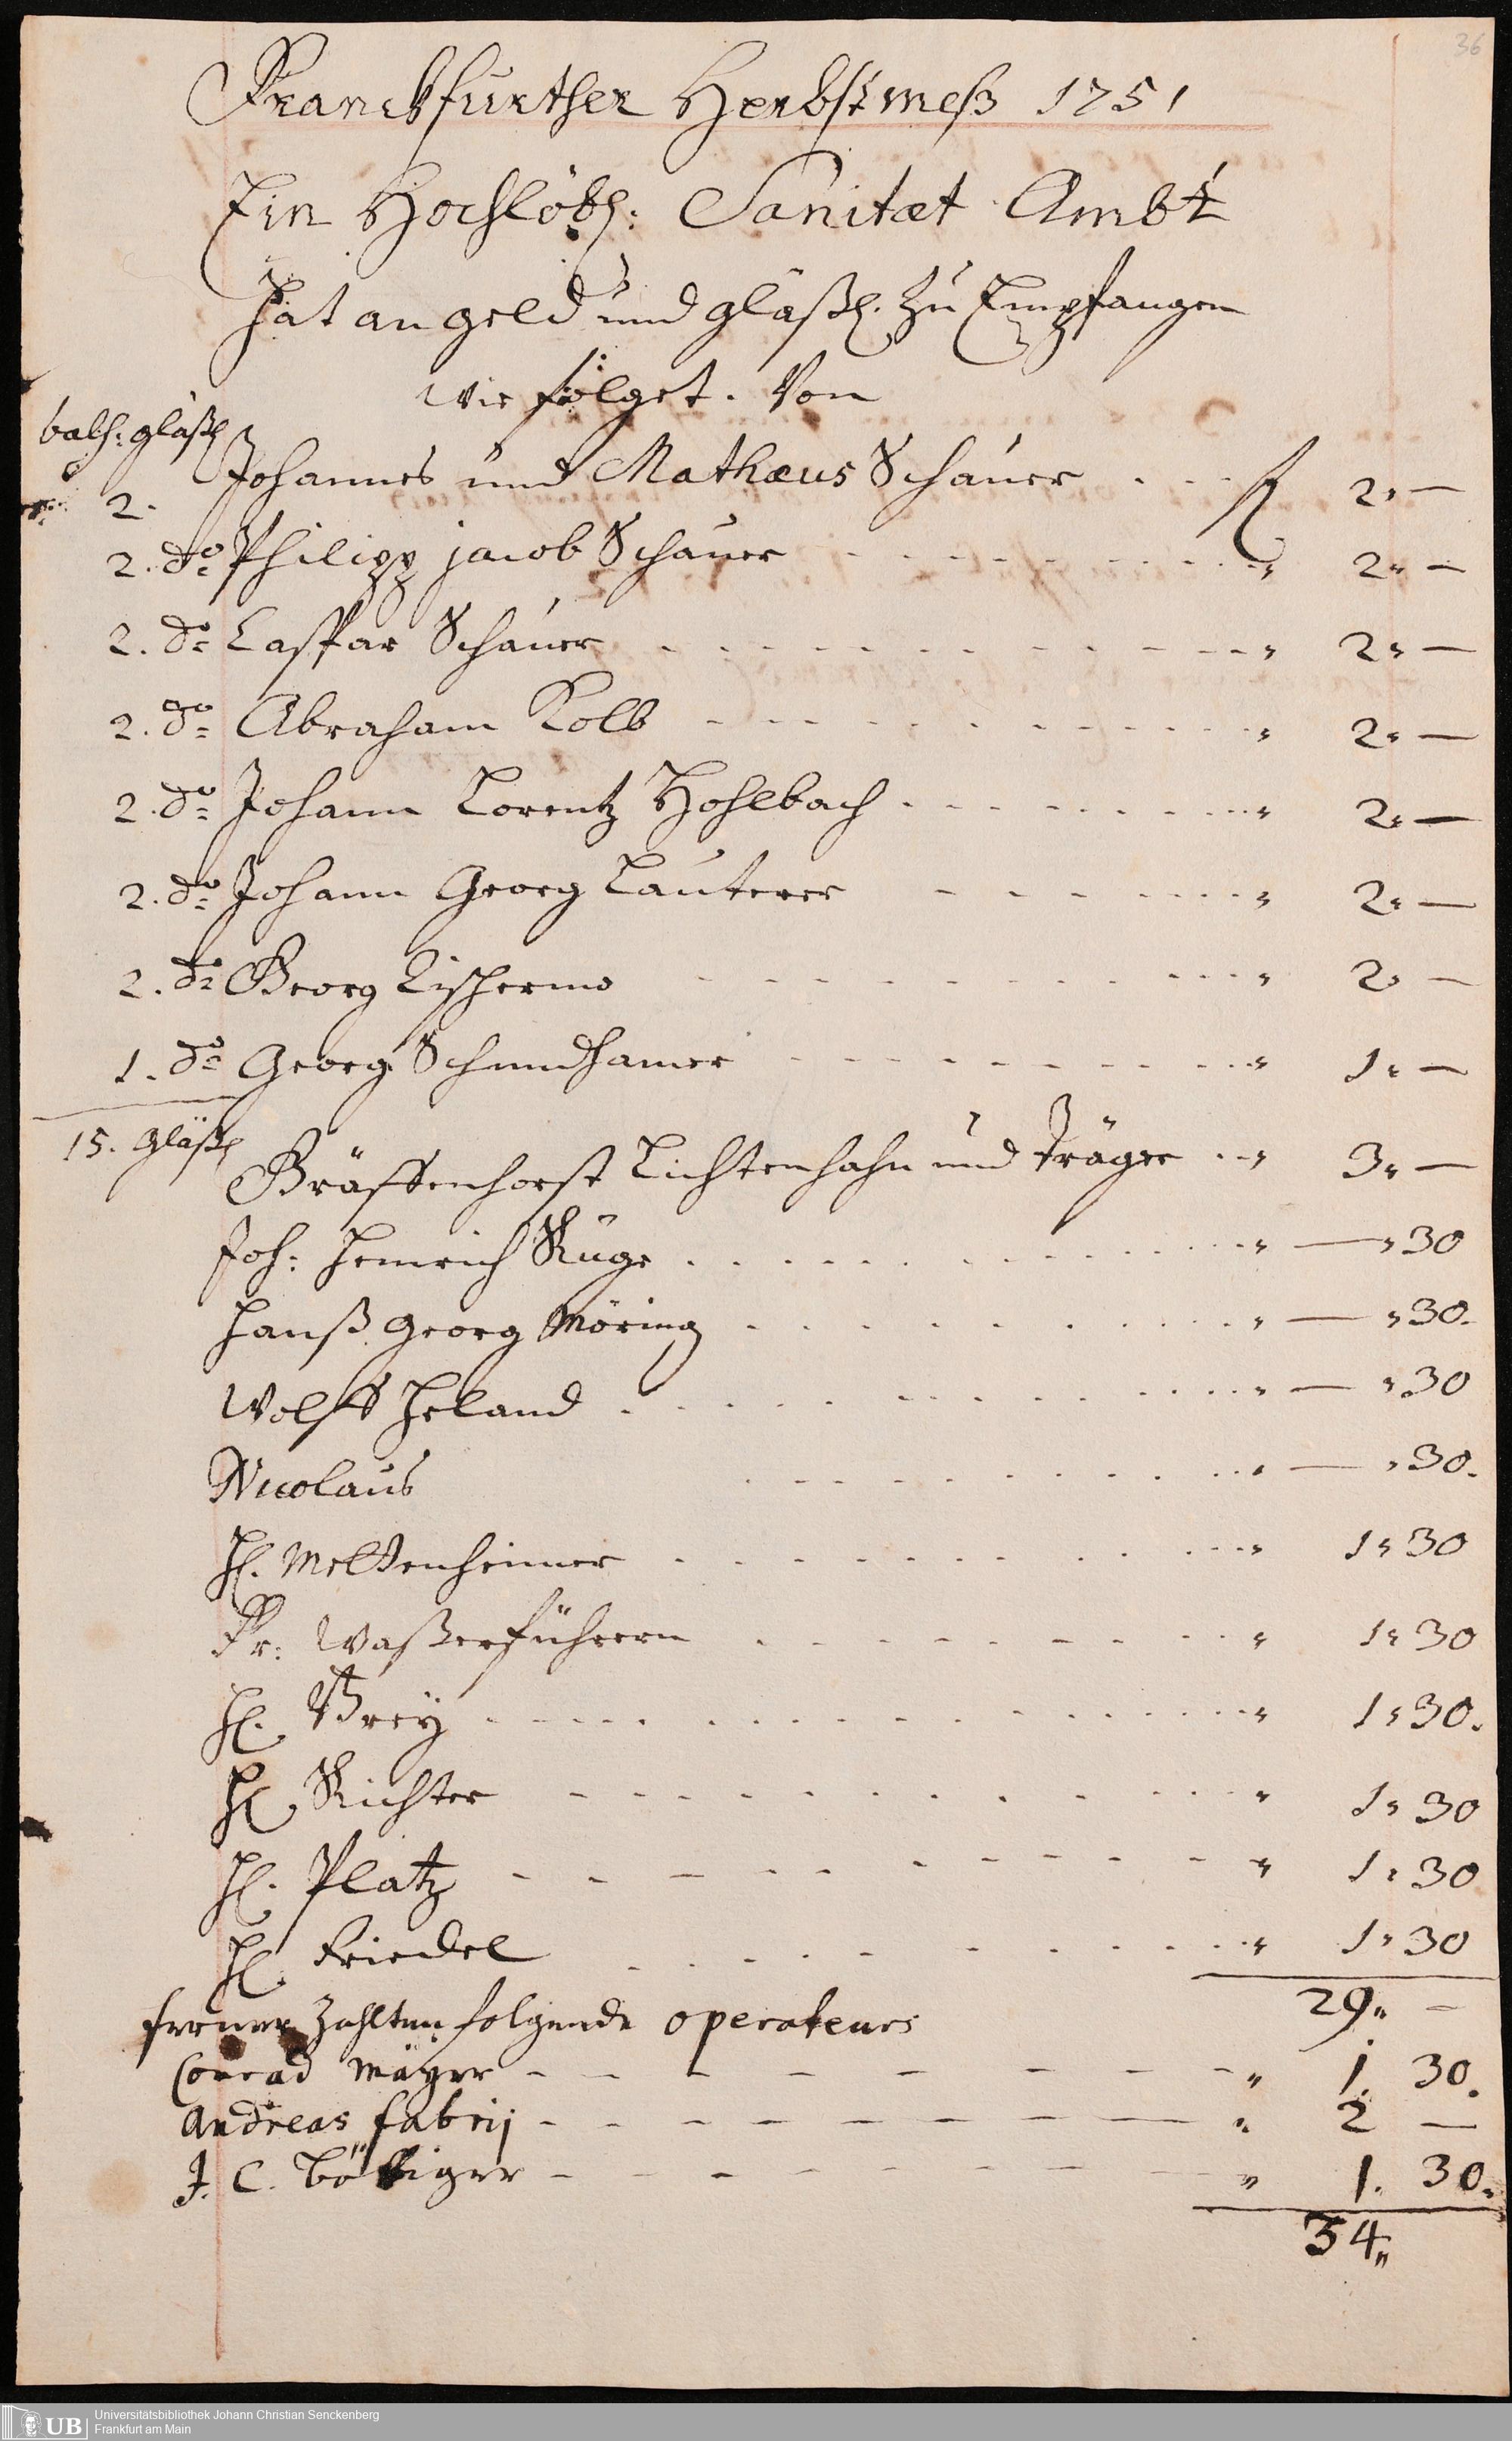 36
Franckfurther Herbstmeß 1751
Ein Hochlöbl: Sanitæt Ambt
hat an geld und gläßl. zu Empfangen
wie folget. Von
bals: gläßl
2. Johannes und Mathæus Schauer . . . fl 2„ —
2. do Philipp jacob Schauer - - - „ 2„ —
2. do Caspar Schauer - - - „ 2„ —
2. do Abraham Kolb - - - „ 2„ —
2. do Johann Lorentz Hohlbach - - - „ 2„ —
2. do Johann Georg Lauterer - - - „ 2„ —
2. do Georg - - - „ 2„ —
1. do Georg - - - „ 1„ —
15. Gläßl
Gräffenhorst Lichtenhahn und Träger . . „ 3„ —
Joh: Henrich Ruge . . . „ — „ 30
Hanß Georg Möring . . . „ — „ 30.
Wolff Heland . . . „ — „ 30
Nicolaus . . . „ — „ 30.
H. Meltenheimer . . . „ 1„ 30
Fr: Waßerführern . . . „ 1„ 30
H. Brey - - - „ 1„ 30.
H. Richter - - - „ 1„ 30
H. Platz - - - „ 1„ 30
H. Friedel - - - „ 1„ 30
29„ —
ferner zahlten folgende operateurs
Conrad Mäyer - - - „ 1. 30.
Andreas fabrij - - - „ 2 —
J. C. Böttiger - - - „ 1. 30.
34„
UB
Universitätsbibliothek Johann Christian Senckenberg
Frankfurt am Main